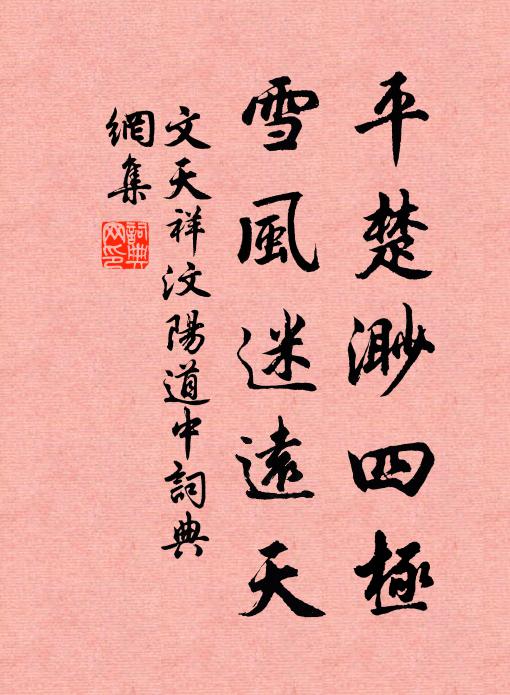 平楚渺四極
雪風迷遠天
文天祥汶陽道中詞典
網集
詞典
網印